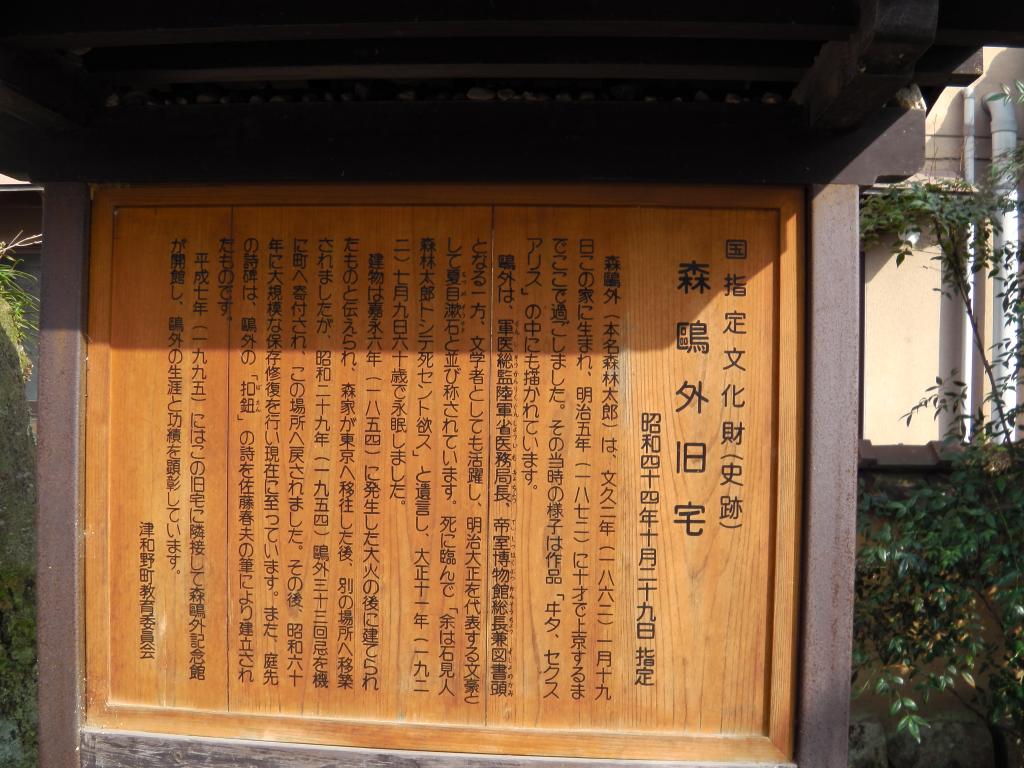 国指定文化財(史跡)
森鷗外旧宅
昭和四十四年十月二十九日 指定
森鷗外（本名森林太郎）は、文久二年（一八六二）一月十九
日この家に生まれ、明治五年（一八七二）に十才で上京するま
でここで過ごしました。その当時の様子は作品「ヰタ、セクス
アリス」の中にも描かれています。
鷗外は、軍医総監陸軍省医務局長、帝室博物館総長兼図書頭
となる一方、文学者としても活躍し、明治大正を代表する文豪と
して夏目漱石と並び称されています。死に臨んで「余は石見人
森林太郎トシテ死セント欲ス」と遺言し、大正十一年（一九二
二）七月九日六十歳で永眠しました。
建物は嘉永六年（一八五四）に発生した大火の後に建てられ
たものと伝えられ、森家が東京へ移住した後、別の場所へ移築
されましたが、昭和二十九年（一九五四）鷗外三十三回忌を機
に町へ寄付され、この場所へ戻されました。その後、昭和六十
年に大規模な保存修復を行い現在に至っています。また、庭先
の詩碑は、鷗外の「扣鈕」の詩を佐藤春夫の筆により建立され
たものです。
平成七年（一九九五）にはこの旧宅に隣接して森鷗外記念館
が開館し、鷗外の生涯と功績を顕彰しています。
津和野町教育委員会